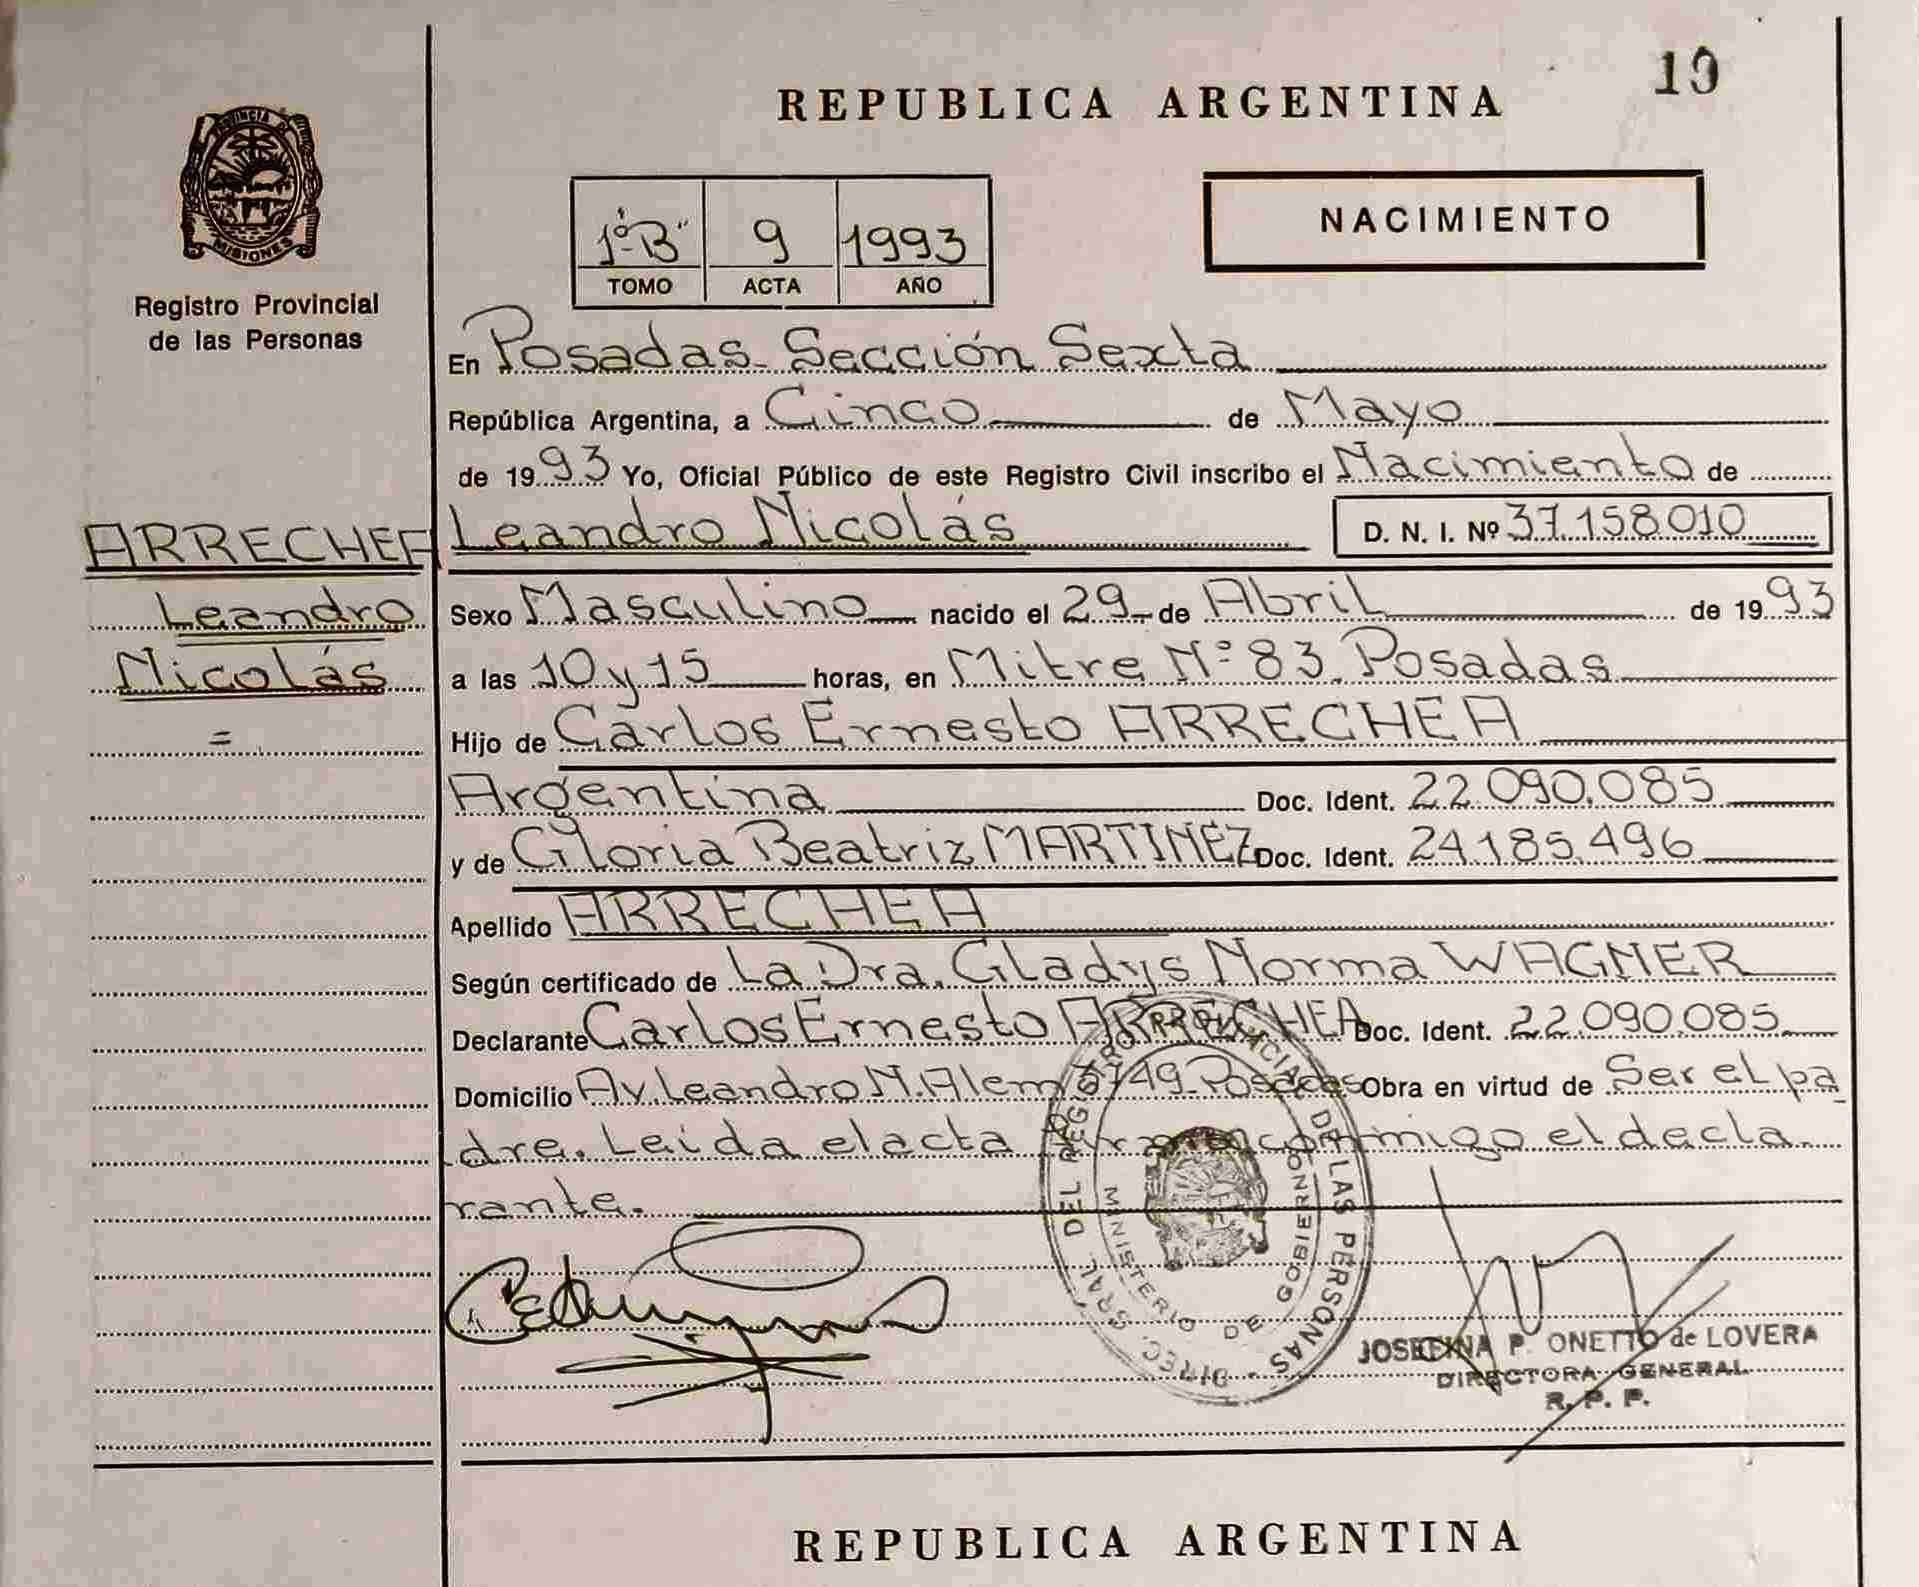 19
REPUBLICA ARGENTINA
PROVINCIA DE
MISIONES
Registro Provincial
de las Personas
1º "B" 9 1993
TOMO ACTA AÑO
NACIMIENTO
En Posadas Sección Sexta
República Argentina, a Cinco de Mayo
de 1993 Yo, Oficial Público de este Registro Civil inscribo el Nacimiento de
ARRECHEA
Leandro
Nicolás
=
Leandro Nicolás D. N. I. Nº 37.158.010
Sexo Masculino nacido el 29 de Abril de 1993
a las 10 y 15 horas, en Mitre Nº 83. Posadas
Hijo de Carlos Ernesto ARRECHEA
Argentina Doc. Ident. 22.090.085
y de Gloria Beatriz MARTINEZ Doc. Ident. 24.185.496
Apellido ARRECHEA
Según certificado de La Dra. Gladys Norma WAGNER
Declarante Carlos Ernesto ARRECHEA Doc. Ident. 22.090.085
Domicilio Av. Leandro N. Alem Posadas Obra en virtud de Ser el pa
dre. Leida el acta conmigo el decla
rante.
DIREC. GRAL. DEL REGISTRO PROVINCIAL DE LAS PERSONAS
MINISTERIO DE GOBIERNO
JOSEFINA P. ONETTO de LOVERA
DIRECTORA GENERAL
R. P. P.
REPUBLICA ARGENTINA